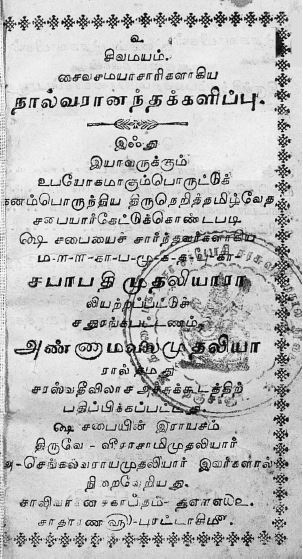 உ
சிவமயம்.
சைவசமயாசாரிகளாகிய
நால்வரானந்தக்களிப்பு.
இஃது
இயாவருக்கும்
உபயோகமாகும்பொருட்டுக்
கனம்பொருந்திய திருநெறித்தமிழ்வேத
சபையார்கேட்டுக்கொண்டபடி
௸ சபையைச் சார்ந்தவர்களாகிய
சபாபதிமுதலியாரா
லியற்றப்பட்டுச்
சதுரங்கபட்டணம்,
அண்ணாமலைமுதலியா
ரால் தமது
சரஸ்வதீவிலாச அச்சுக்கூடத்திற்
பதிப்பிக்கப்பட்டது.
௸ சபையின் இராயசம்
திருவே - வீராசாமிமுதலியார்
அ-செங்கல்வராயமுதலியார் இவர்களால்
நிறைவேறியது.
சாலிவாகனசகாப்தம்-
சாதாரண௵-புரட்டாசி௴.